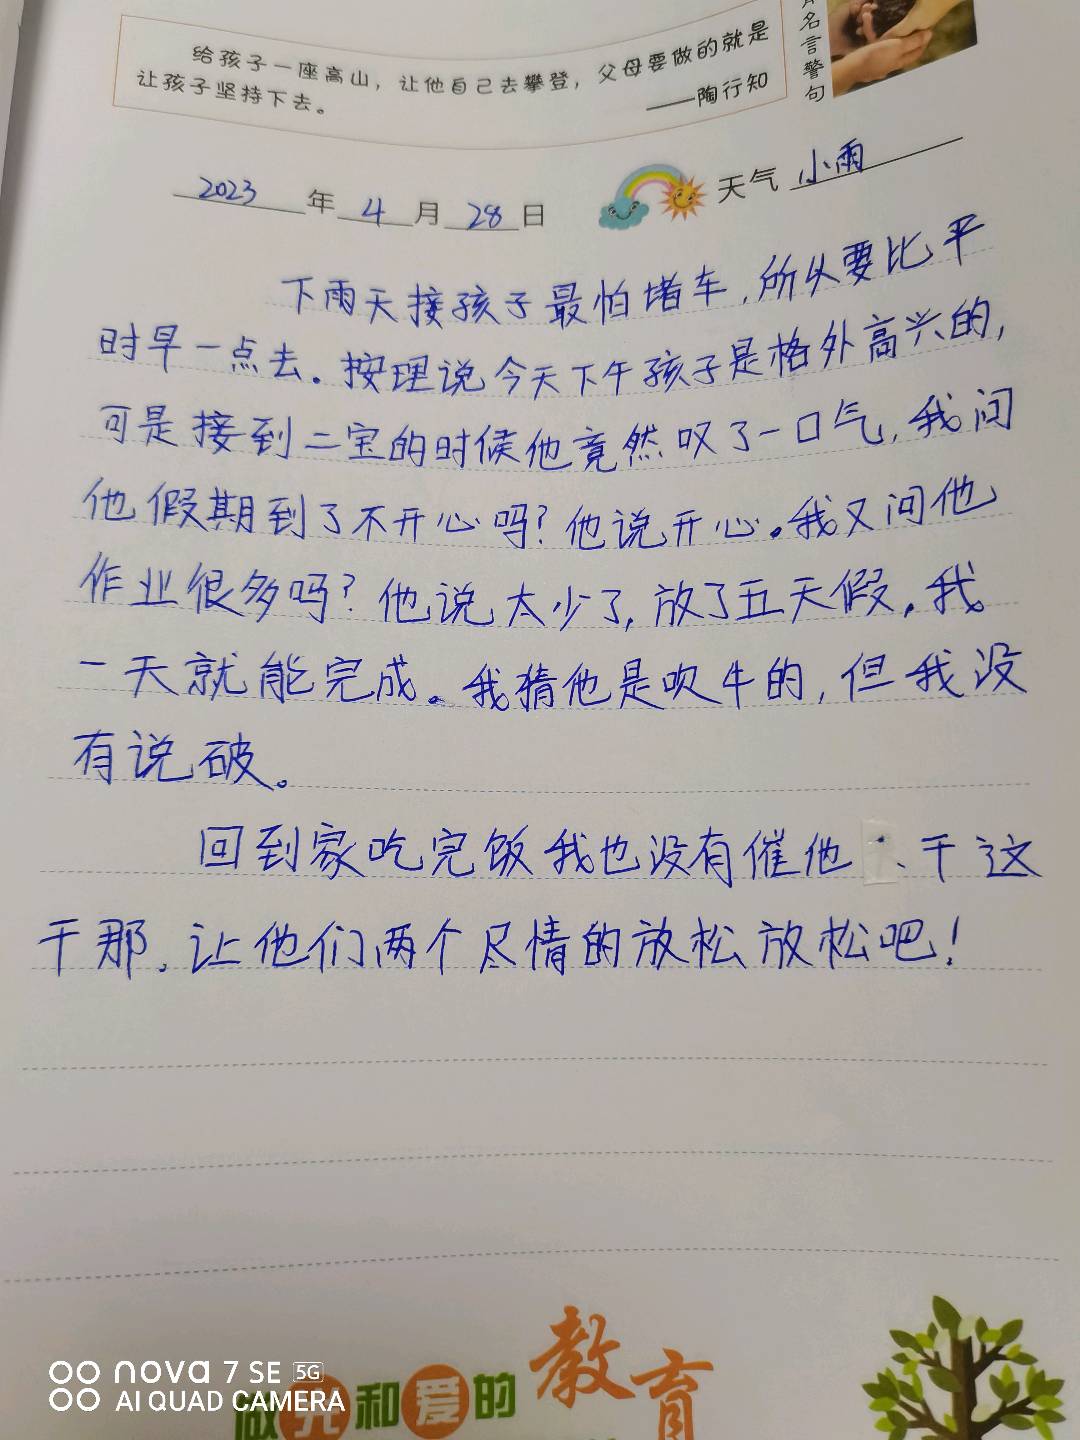 给孩子一座高山，让他自己去攀登，父母要做的就是
让孩子坚持下去。
——陶行知
名言警句
2023年4月28日
天气 小雨
下雨天接孩子最怕堵车，所以要比平
时早一点去。按理说今天下午孩子是格外高兴的，
可是接到二宝的时候他竟然叹了一口气，我问
他假期到了不开心吗？他说开心。我又问他
作业很多吗？他说太少了，放了五天假，我
一天就能完成。我猜他是吹牛的，但我没
有说破。
回到家吃完饭我也没有催他、干这
干那，让他们两个尽情的放松放松吧！
做 和爱的教育
nova 7 SE 5G
AI QUAD CAMERA